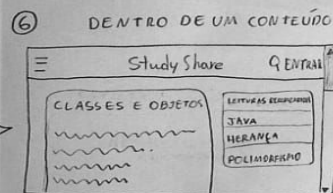 6 DENTRO DE UM CONTEÚDO
Study Share ENTRAR
CLASSES E OBJETOS
LEITURAS
JAVA
HERANÇA
POLIMORFISMO